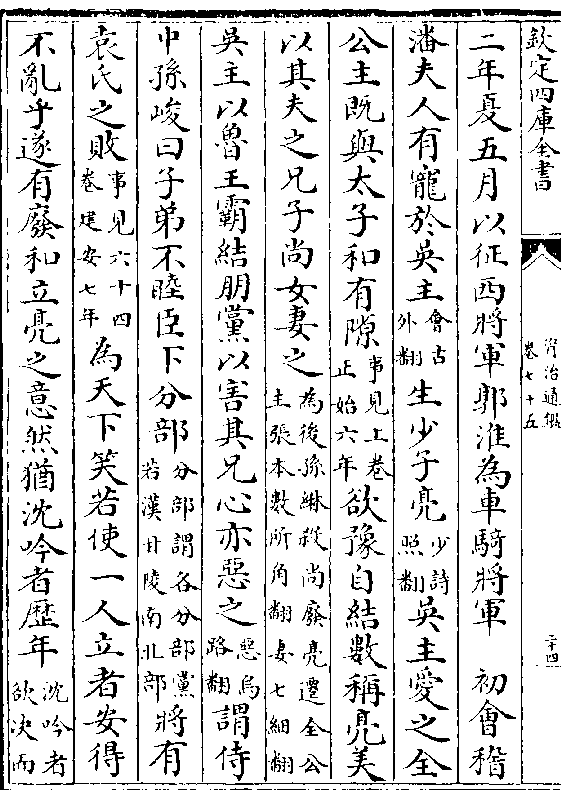 欽定四庫全書
資治通鑑
卷七十五
二十四
二年夏五月以征西將軍郭淮為車騎將軍 初會稽
潘夫人有寵於吳主會古外翻生少子亮少詩照翻吳主愛之全
公主既與太子和有隙事見上卷正始六年欲豫自結數稱亮美
以其夫之兄子尚女妻之為後孫綝殺尚廢亮遷全公主張本數所角翻妻七細翻
吳主以魯王霸結朋黨以害其兄心亦惡之惡烏路翻謂侍
中孫峻曰子弟不睦臣下分部分部謂各分部黨若漢甘陵南北部將有
袁氏之敗事見六十四卷建安七年為天下笑若使一人立者安得
不亂乎遂有廢和立亮之意然猶沈吟者歷年沈吟者欲決而